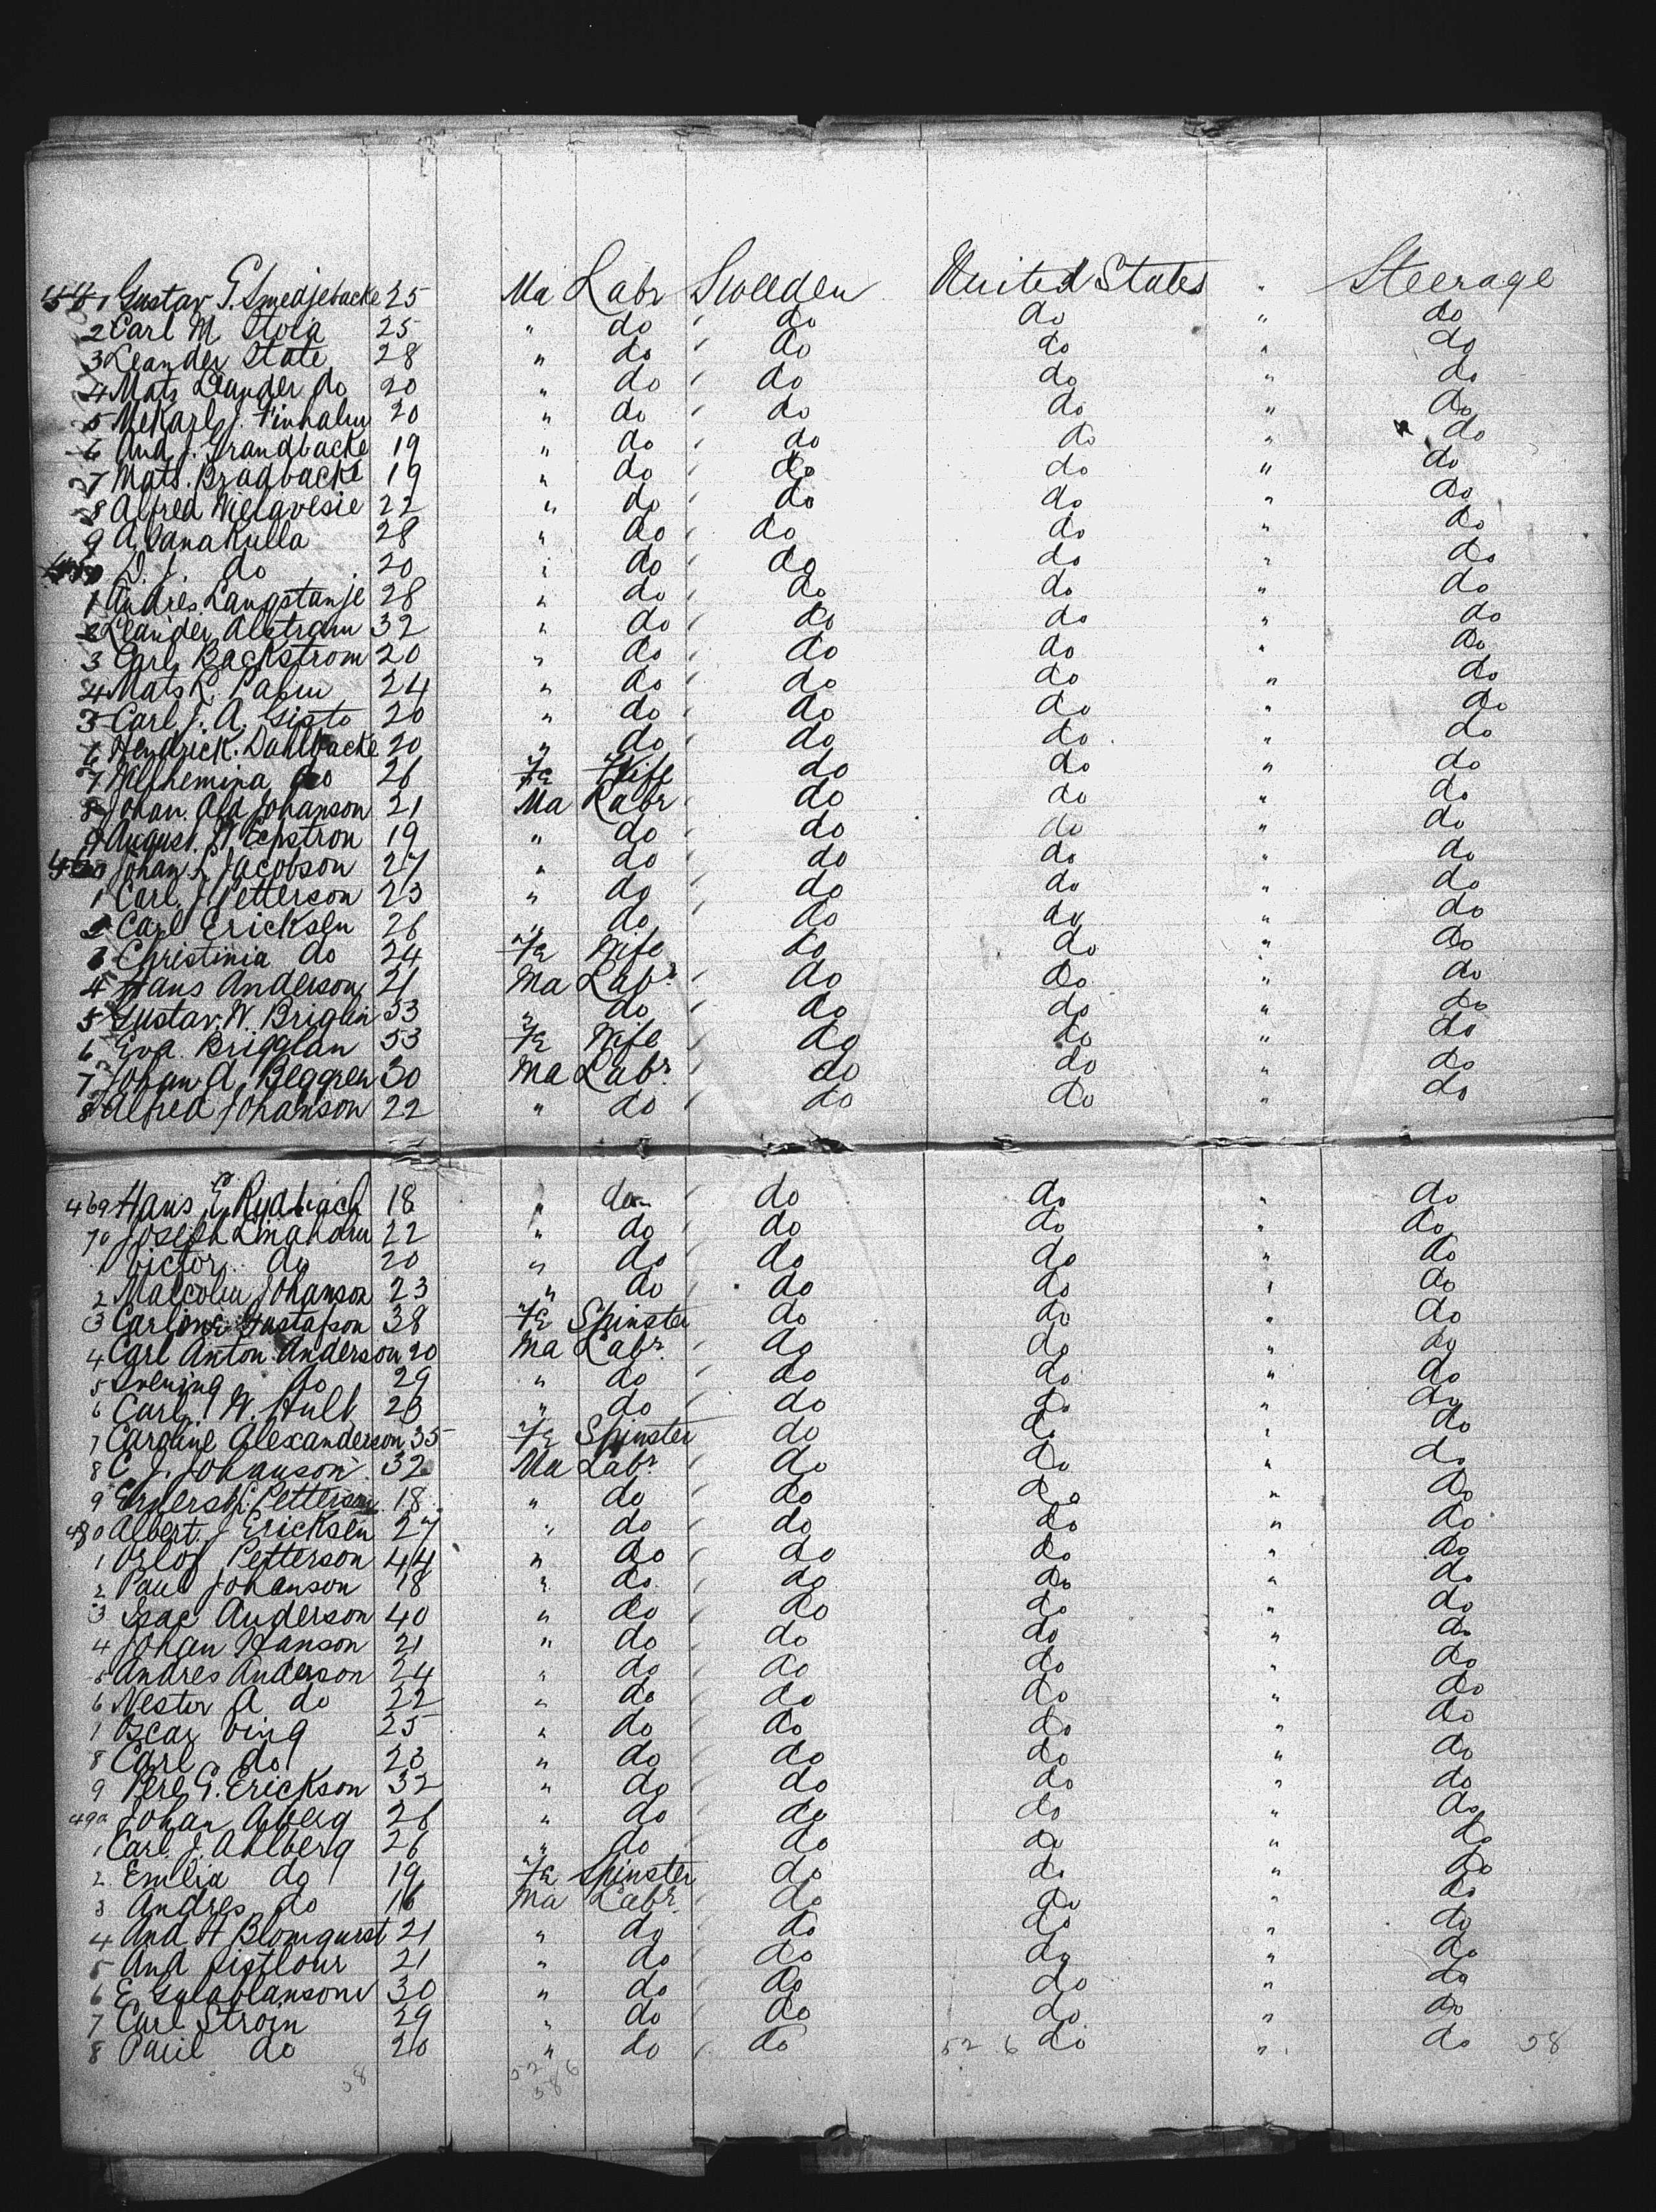 441 Gustav G. Smedjebacke 25 Ma Labr Sweeden United States " Steerage
2 Carl M Stola 25 " do do do " do
3 Leander State 28 " do do do " do
4 Mats Leander do 20 " do do do " do
5 J. Finhalm 20 " do do do " do
6 And J. Grandbacke 19 " do do do " do
7 Mats. Bradbacke 19 " do do do " do
8 Alfred 22 " do do do " do
9 A. 28 " do do do " do
450 do 20 " do do do " do
1 Andres Langstanje 28 " do do do " do
2 Leander Alstram 32 " do do do " do
3 Carl Backstrom 20 " do do do " do
4 Mats K. 24 " do do do " do
5 Carl J. A. Sisto 20 " do do do " do
6 Hendrick. Dahlbacke 20 " do do do " do
7 Wilhemina do 26 Fe Wife do do " do
8 Johan. Ald Johanson 21 Ma Labr do do " do
9 August. 19 " do do do " do
460 Johan L Jacobson 27 " do do do " do
1 Carl J Petterson 23 " do do do " do
2 Carl Ericksen 26 " do do do " do
3 Christinia do 24 Fe Wife do do " do
4 Hans Anderson 21 Ma Labr do do " do
5 Gustav. W. Briglin 33 " do do do " do
6 Eva Brigglan 53 Fe Wife do do " do
7 Johan A. Beggren 30 Ma Labr do do " do
8 Alfred Johanson 22 " do do do " do
469 Hans E Rydbach 18 " do do do " do
70 Joseph Linaholm 22 " do do do " do
1 Victor do 20 " do do do " do
2 Malcolm Johanson 23 " do do do " do
3 Carline Gustafson 38 Fe Spinster do do " do
4 Carl Anton Anderson 20 Ma Labr do do " do
5 Svening do 29 " do do do " do
6 Carl W. Hult 23 " do do do " do
7 Caroline Alexanderson 35 Fe Spinster do do " do
8 C. J. Johanson 32 Ma Labr do do " do
9 Petterson 18 " do do do " do
480 Albert J Ericksen 27 " do do do " do
1 Orlof Petterson 44 " do do do " do
2 Paul Johanson 18 " do do do " do
3 Isac Anderson 40 " do do do " do
4 Johan Hanson 21 " do do do " do
5 Andres Anderson 24 " do do do " do
6 Nestor A do 22 " do do do " do
7 Oscar Ving 25 " do do do " do
8 Carl do 23 " do do do " do
9 Pere G. Erickson 32 " do do do " do
490 Johan Aberg 26 " do do do " do
1 Carl J. Ahlberg 26 " do do do " do
2 Emilia do 19 Fe Spinster do do " do
3 Andres do 16 Ma Labr do do " do
4 And A Blomqurst 21 " do do do " do
5 And 21 " do do do " do
6 E 30 " do do do " do
7 Carl Strom 29 " do do do " do
8 Paul do 20 " do do 52 6 do " do 58
58 52 6
58